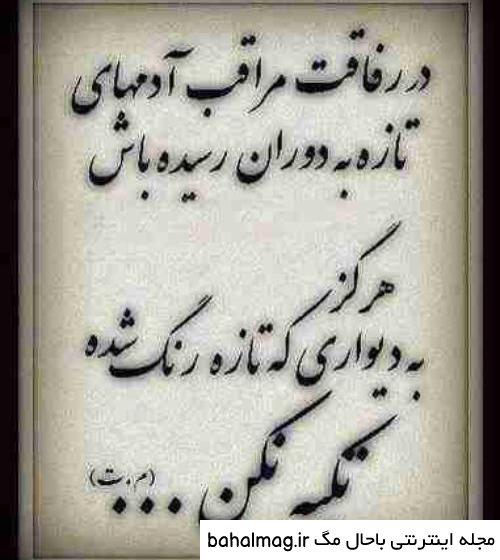 در رفاقت مراقب آدمهای
تازه به دوران رسیده باش
هرگز
به دیواری که تازه رنگ شده
تکیه نکن...
(م.ت)
مجله اینترنتی باحال مگ bahalmag.ir